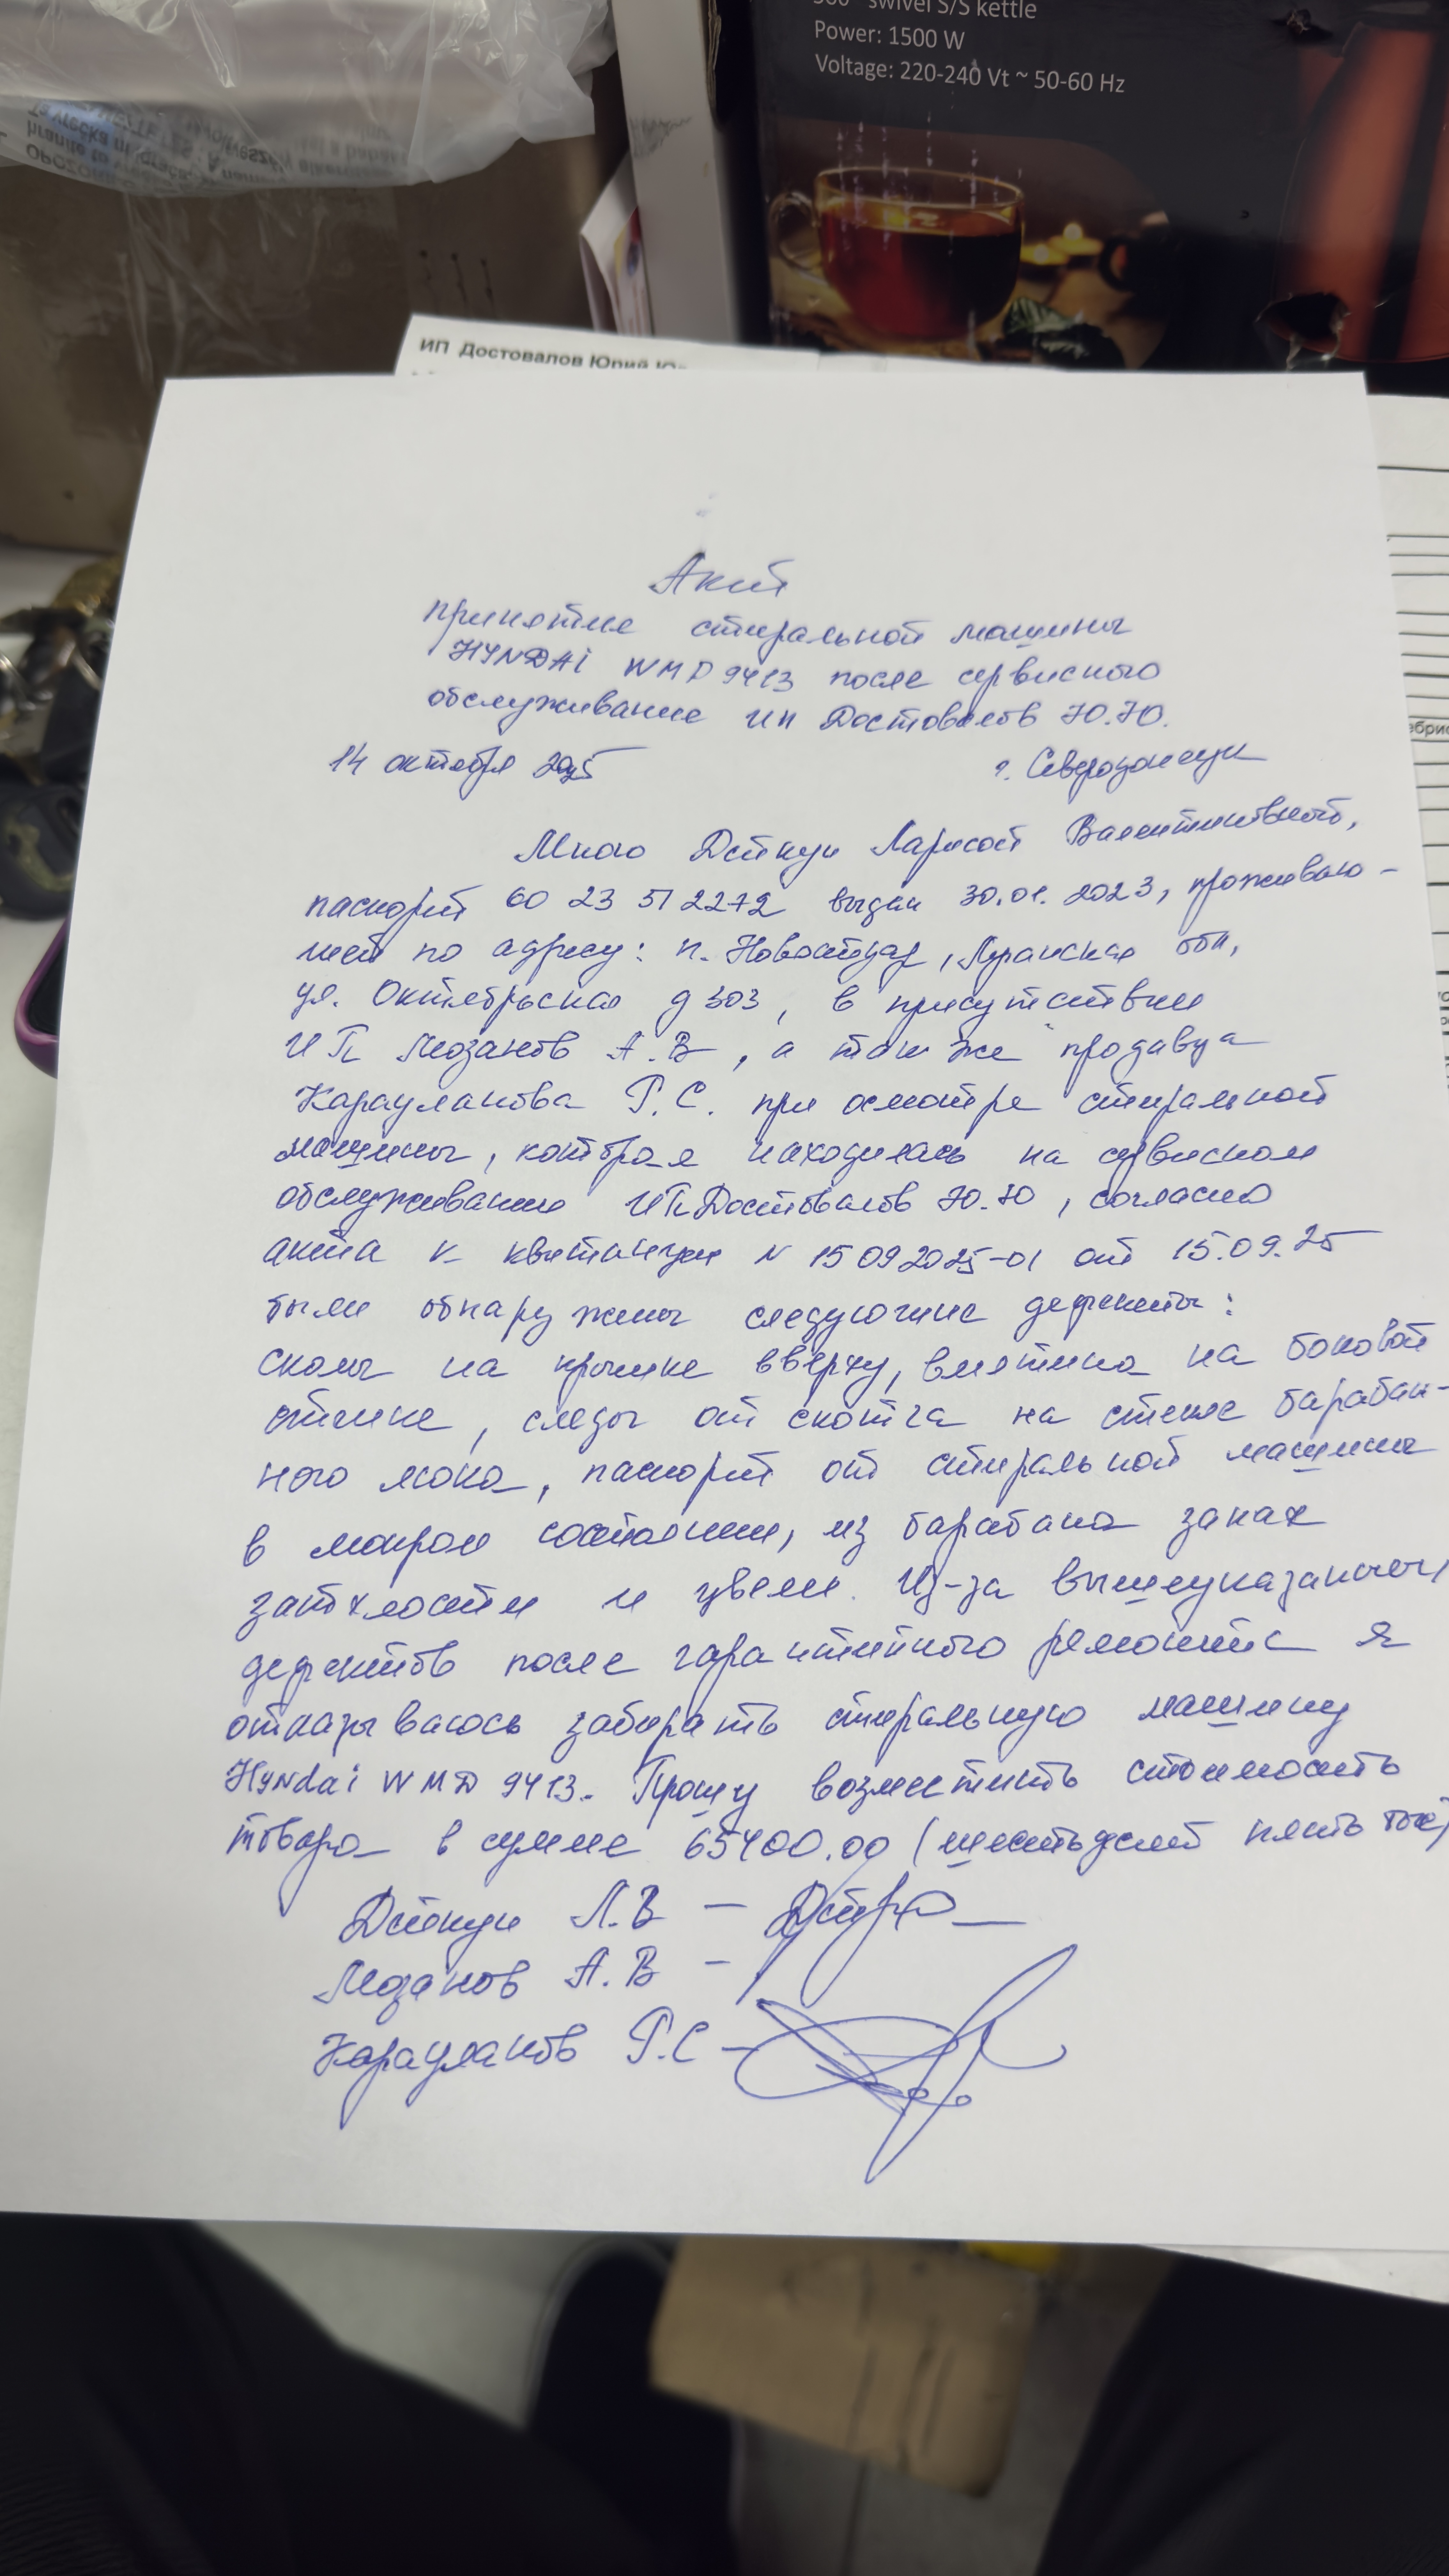 360° swivel S/S kettle
Power: 1500 W
Voltage: 220-240 Vt ~ 50-60 Hz
ИП Достовалов Юрий Ю
Акт
принятие стиральной машины
HYNDAi WMD 9413 после сервисного
обслуживание ип Достовалов Ю.Ю.
14 октября 2025 г. Северодонецк
Мною Дейкун Ларисой Валентиновной,
паспорт 60 23 512272 выдан 30.01.2023, проживаю-
щей по адресу: п. Новоайдар, Луганская обл,
ул. Октябрьская д 303, в присутствии
ИП Мозанов А.В, а так же продавца
Карауланова Р.С. при осмотре стиральной
машины, которая находилась на сервисном
обслуживании ИП Достовалов Ю.Ю, согласно
акта к квитанции N 15092025-01 от 15.09.25
были обнаружены следующие дефекты:
сколы на крышке вверху, вмятина на боковой
стенке, следы от скотча на стекле барабан-
ного люка, паспорт от стиральной машины
в мокром состоянии, из барабана запах
затхлости и цвели. Из-за вышеуказанных
дефектов после гарантийного ремонта я
отказываюсь забирать стиральную машину
Hyndai WMD 9413. Прошу возместить стоимость
товара в сумме 65400.00 (шестьдесят пять тыс)
Дейкун Л.В -
Мозанов А.В -
Карауланов Р.С -